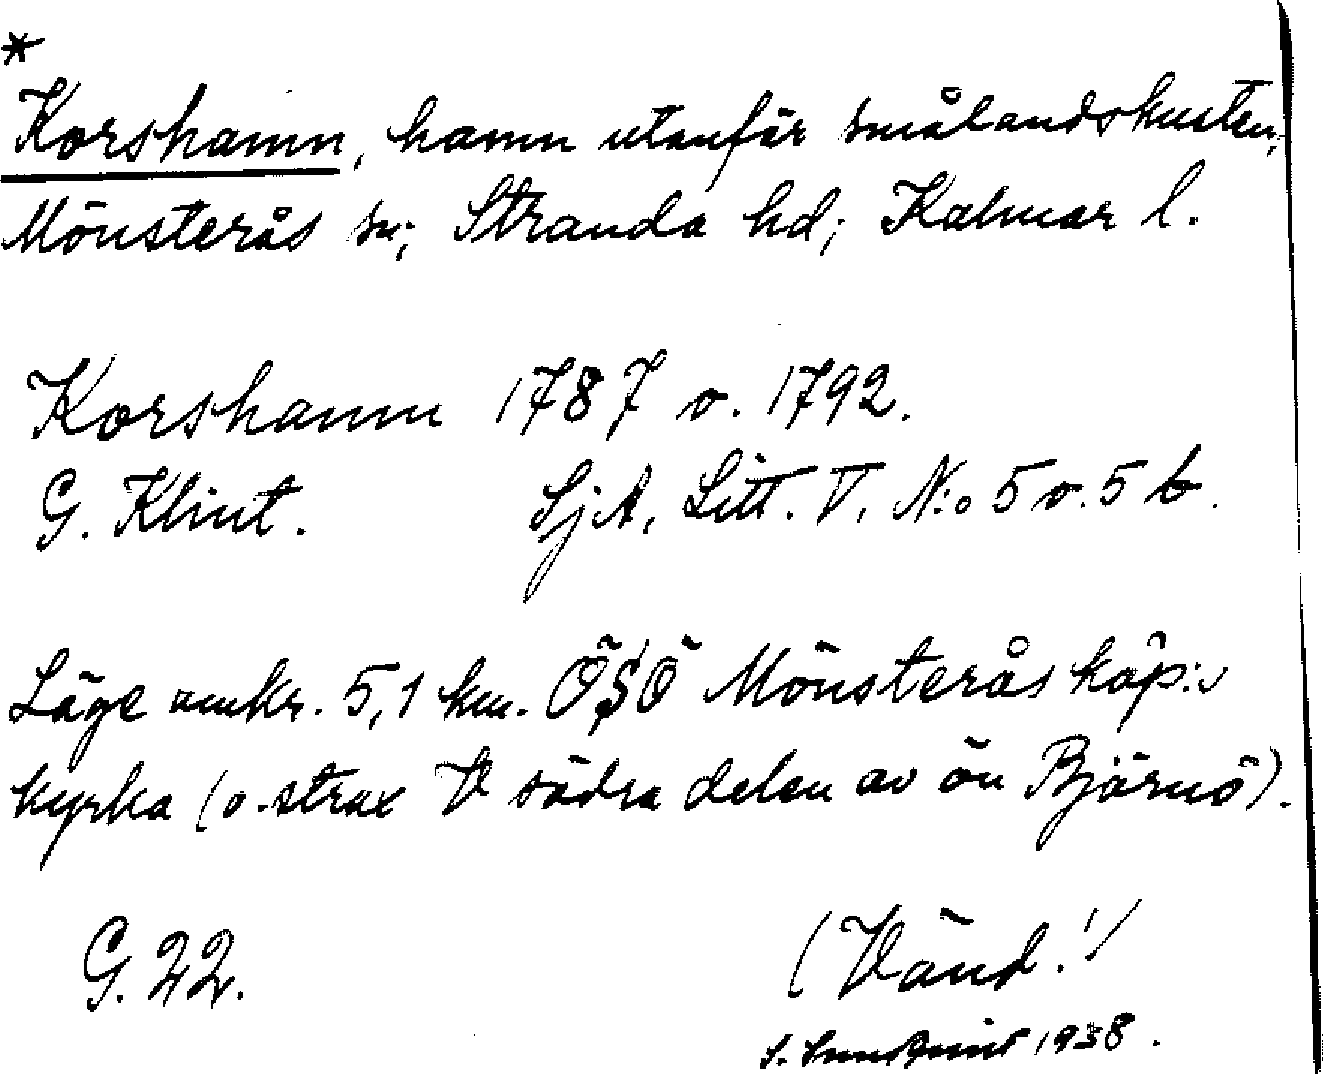 *
Korshamn, hamn utanför smålandskusten,
Mönsterås sn; Stranda hd; Kalmar l.
Korshamn 1787 o. 1792.
G. Klint. SjA, Litt. V, N:o 5 o. 5 b.
Läge omkr. 5,1 km. ÖSÖ Mönsterås köp:s
kyrka (o. strax V södra delen av ön Björnö).
G. 22. (Vänd!)
1938.